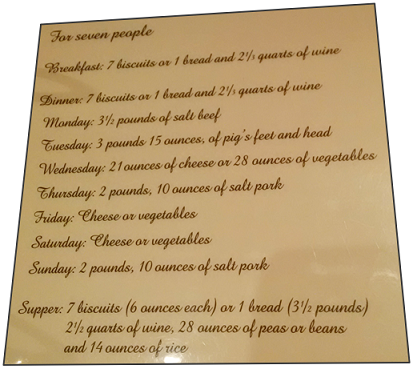 For seven people
Breakfast: 7 biscuits or 1 bread and 2⅓ quarts of wine
Dinner: 7 biscuits or 1 bread and 2⅓ quarts of wine
Monday: 3½ pounds of salt beef
Tuesday: 3 pounds 15 ounces, of pig's feet and head
Wednesday: 21 ounces of cheese or 28 ounces of vegetables
Thursday: 2 pounds, 10 ounces of salt pork
Friday: Cheese or vegetables
Saturday: Cheese or vegetables
Sunday: 2 pounds, 10 ounces of salt pork
Supper: 7 biscuits (6 ounces each) or 1 bread (3½ pounds)
2½ quarts of wine, 28 ounces of peas or beans
and 14 ounces of rice